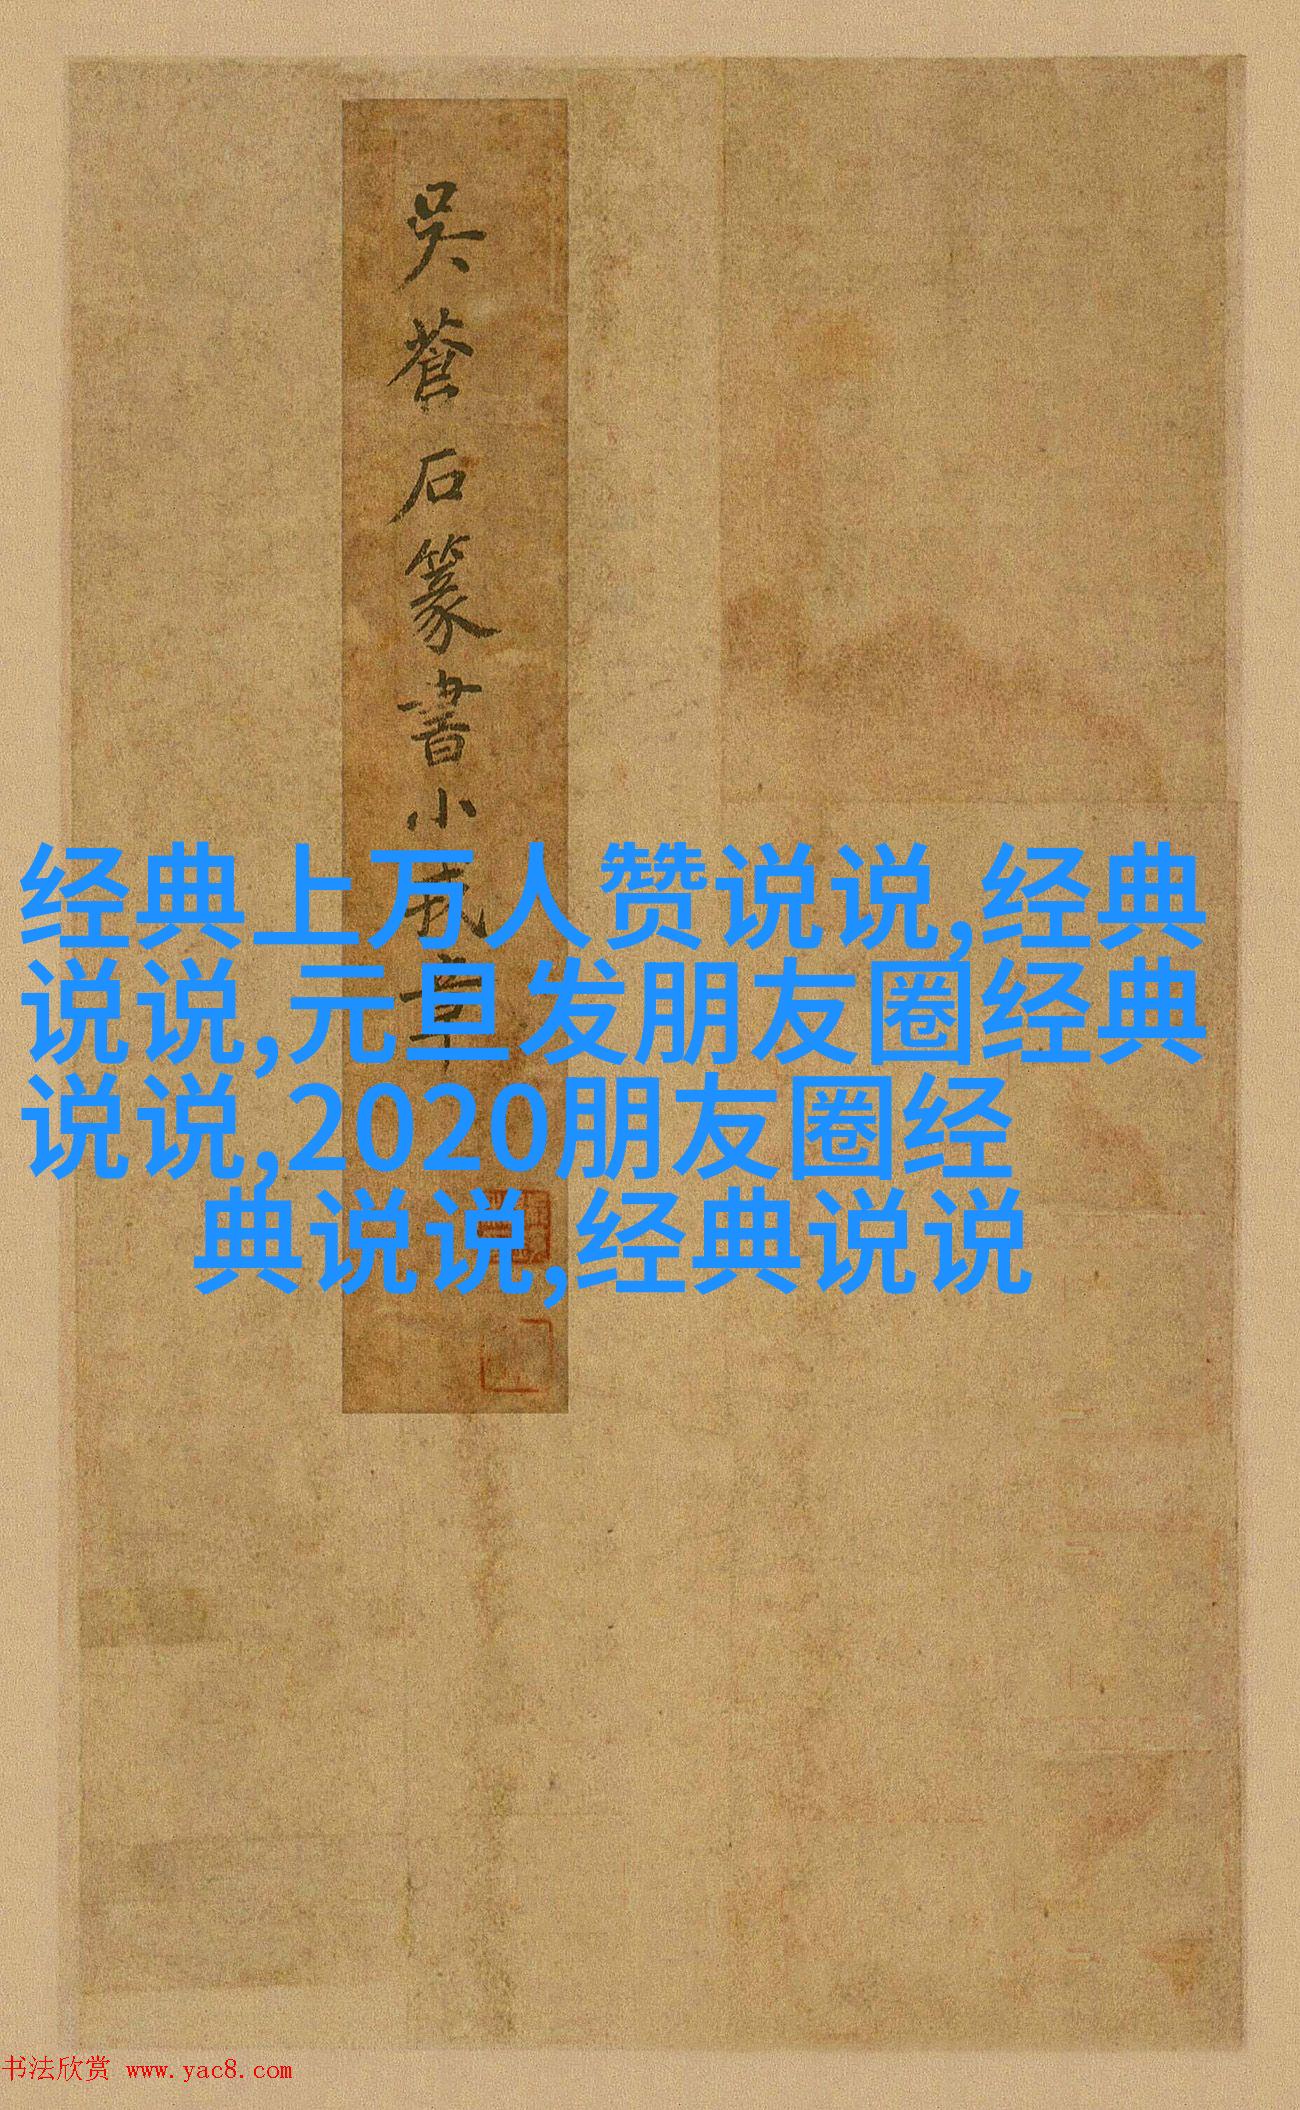 吴蒼石篆書小戎章
经典上万人赞说说,经典
说说,元旦发朋友圈经典
说说,2020朋友圈经
典说说,经典说说
书法欣赏 www.yac8.com